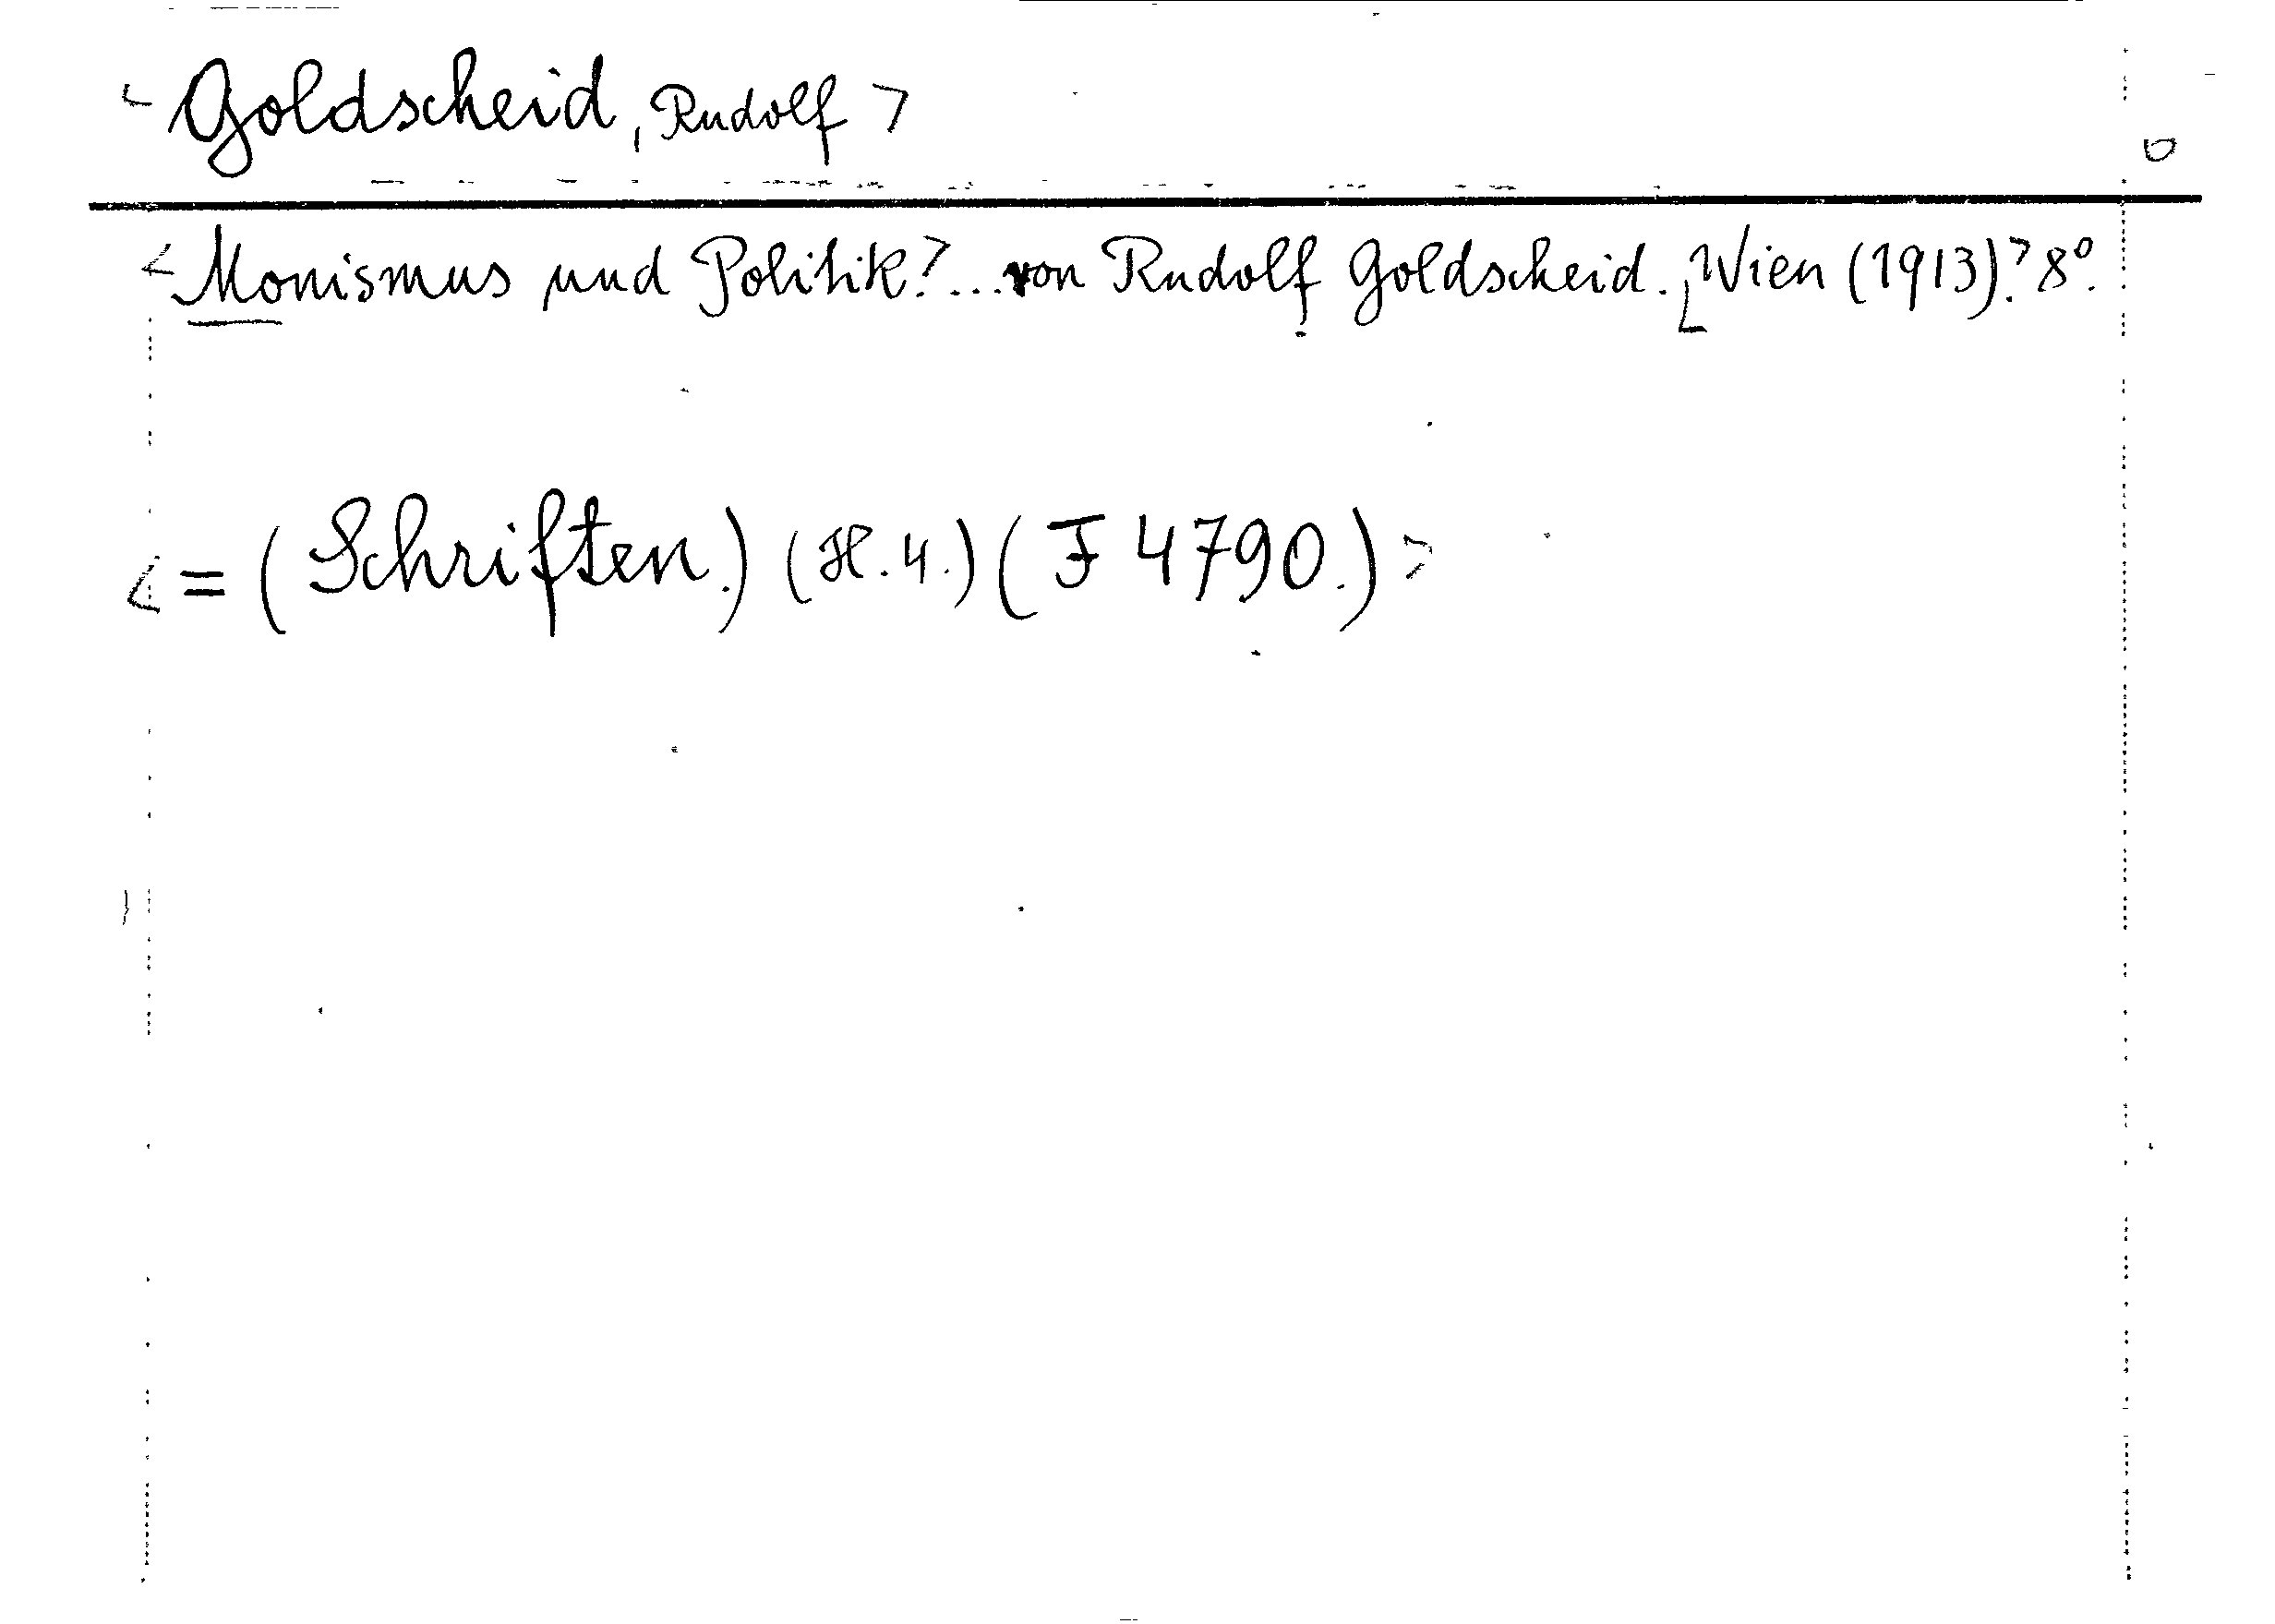 < Goldscheid, Rudolf >
< Monismus und Politik.> ... von Rudolf Goldscheid. <Wien (1913).> 8°.
< = (Schriften.) (H. 4.) (F 4790.) >